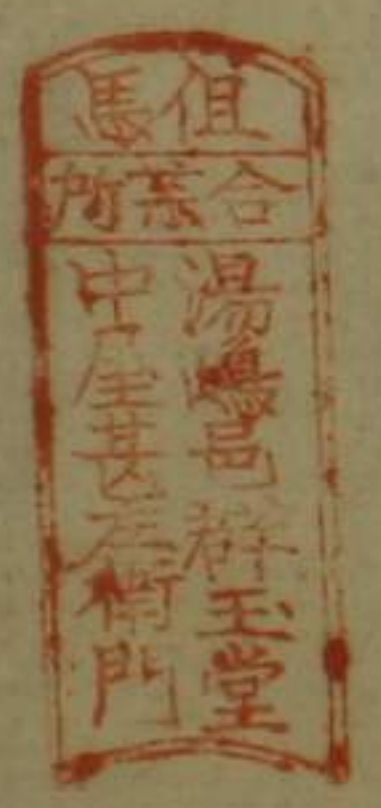 但馬
合薬所
湯嶋邑 群玉堂
中屋甚左衛門